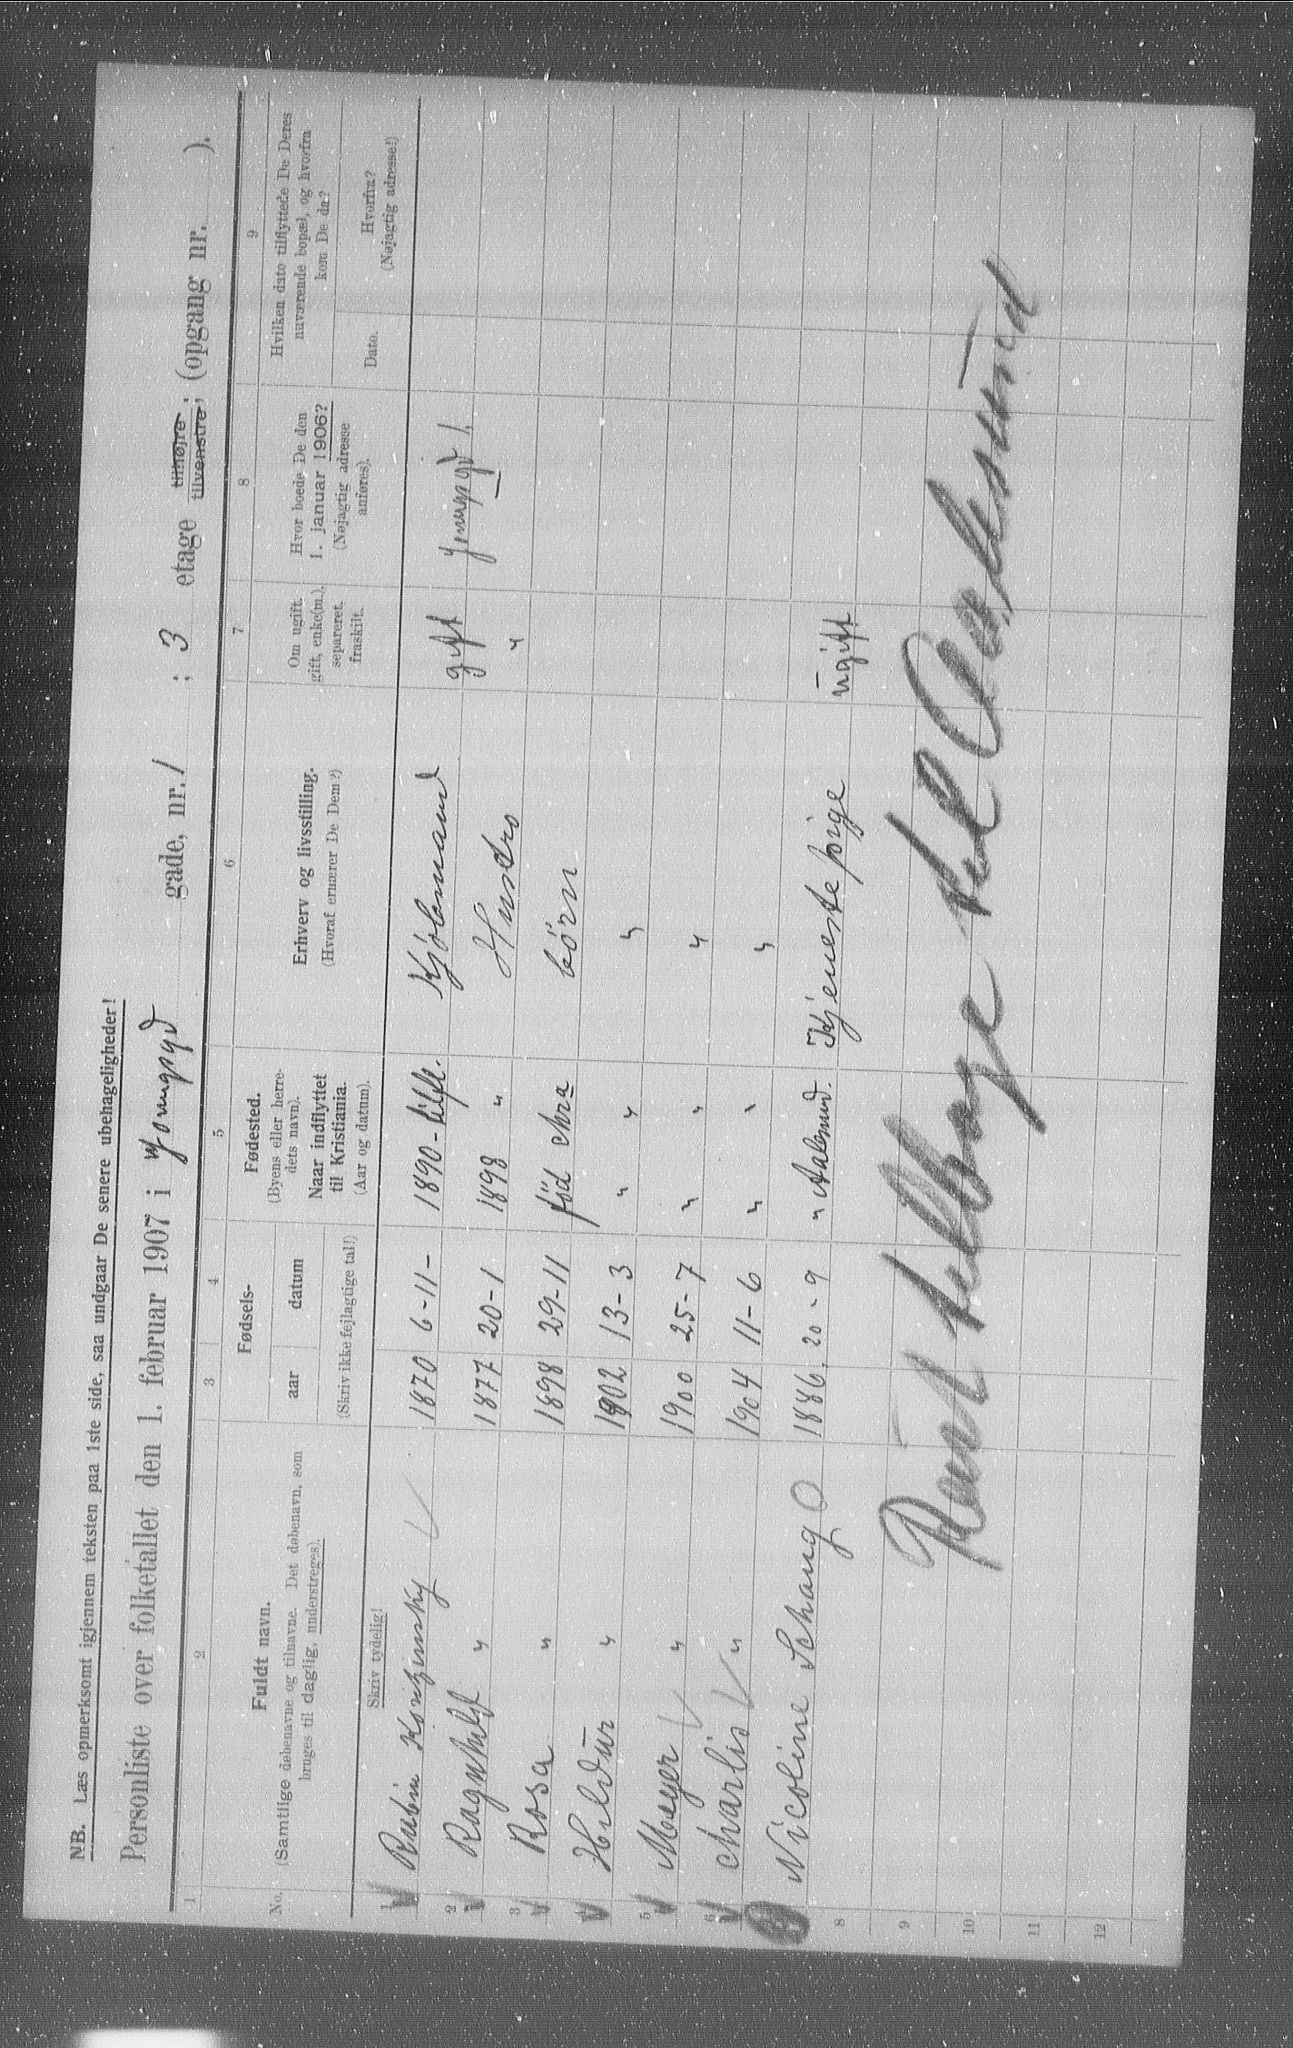 NB. Læs opmerksomt igjennem teksten paa 1ste side, saa undgaar De senere ubehageligheder!
Personliste over folketallet den 1. februar 1907 i Youngsgd gade, nr. 1 ; 3 etage tilhøjre tilvenstre; (opgang nr. ).
1 2 3 4 5 6 7 8 9
No.
Fuldt navn.
(Samtlige døbenavne og tilnavne. Det døbenavn, som
bruges til daglig, understreges).
Skriv tydelig!
Fødsels-
aar datum
(Skriv ikke fejlagtige tal!)
Fødested.
(Byens eller herre-
dets navn).
Naar indflyttet
til Kristiania.
(Aar og datum).
Erhverv og livsstilling.
(Hvoraf ernærer De Dem?)
Om ugift,
gift, enke(m.),
separeret,
fraskilt.
Hvor boede De den
1. januar 1906?
(Nøjagtig adresse
anføres).
Hvilken dato tilflyttede De Deres
nuværende bopæl, og hvorfra
kom De da?
Dato.
Hvorfra?
(Nøjagtig adresse!)
1 Rubin 1870 6-11- 1890- Kjøbmand gift Youngsgd 1.
2 Ragnhild " 1877 20-1 1898 " Hustro " "
3 Rosa " 1898 29-11 föd Chra börn
4 Hildur " 1902 13-3 " " "
5 Meyer " 1900 25-7 " " "
6 Charlis " 1904 11-6 " " "
Nicoline Schaug 1886. 20-9 " Aalesund. Tjeneste pige ugift
8
9
Reist tilbage til Aalesund
10
11
12